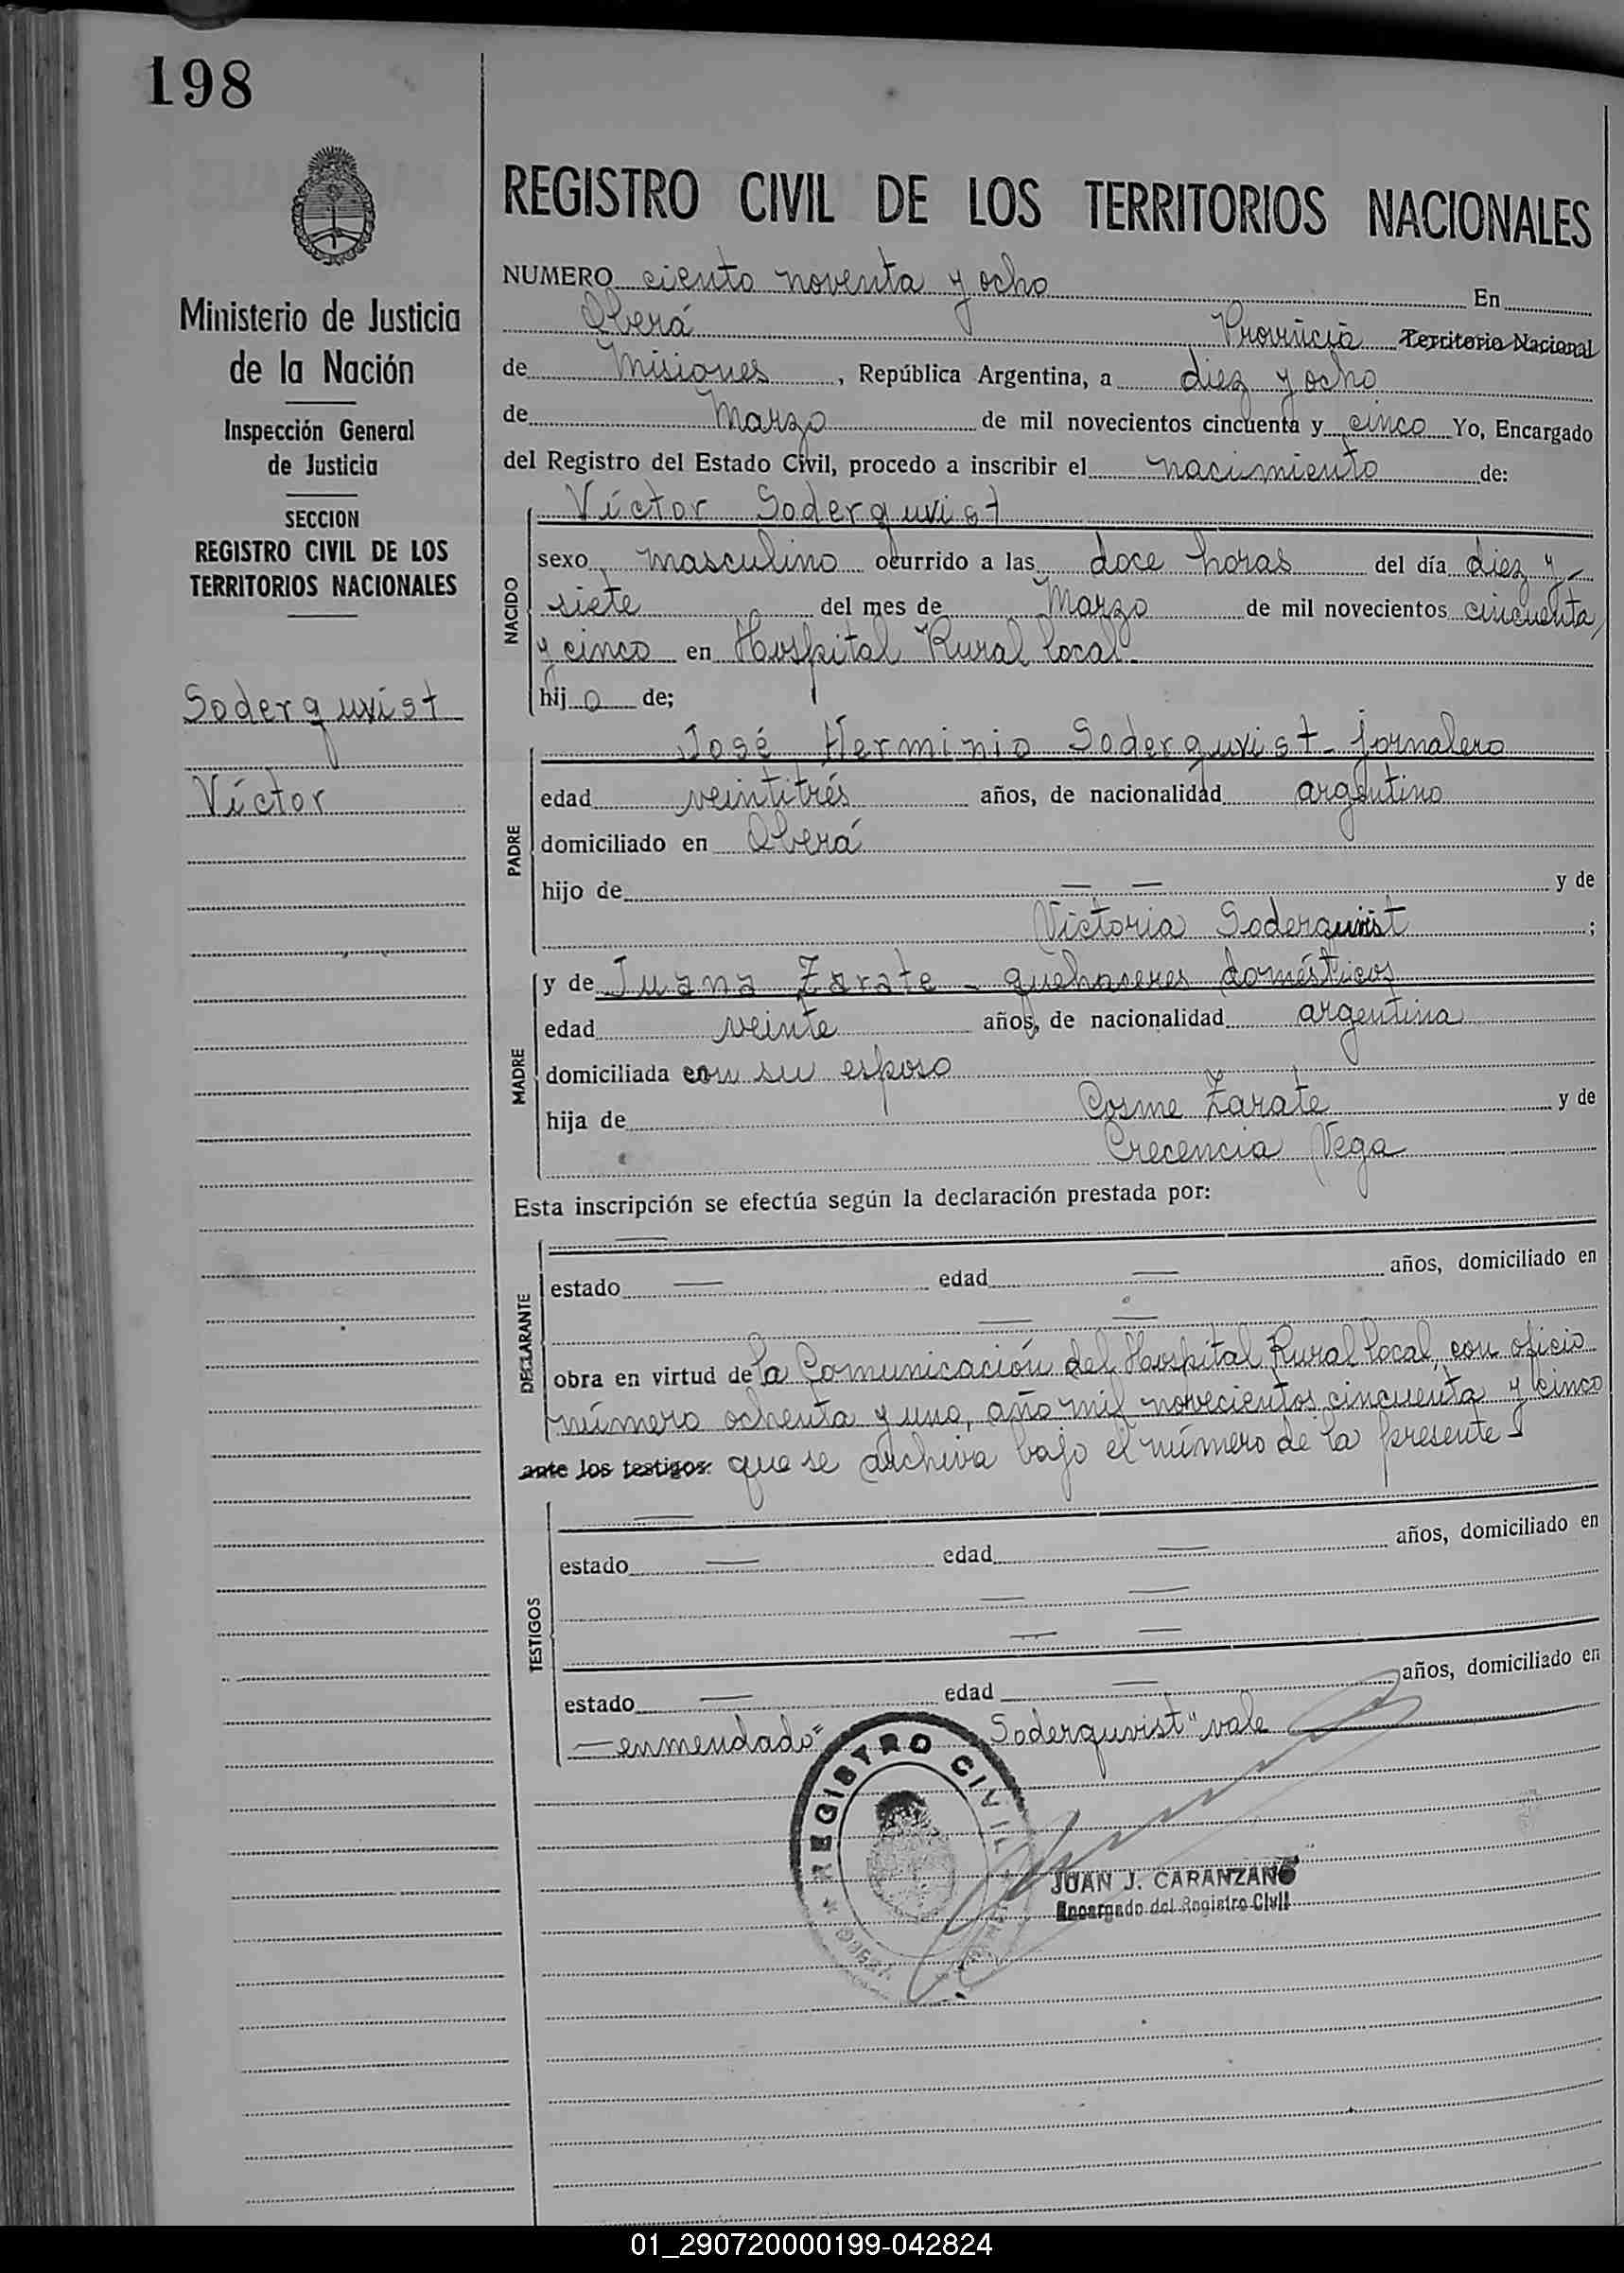 198
Ministerio de Justicia
de la Nación
Inspección General
de Justicia
SECCION
REGISTRO CIVIL DE LOS
TERRITORIOS NACIONALES
Soderquvist
Víctor
REGISTRO CIVIL DE LOS TERRITORIOS NACIONALES
NUMERO ciento noventa y ocho En
Oberá Provincia Territorio Nacional
de Misiones, República Argentina, a diez y ocho
de Marzo de mil novecientos cincuenta y cinco Yo, Encargado
del Registro del Estado Civil, procedo a inscribir el nacimiento de:
NACIDO
Víctor Soderquvist
sexo masculino ocurrido a las doce horas del día diez y
siete del mes de Marzo de mil novecientos cincuenta
y cinco en Hospital Rural local
hijo de;
PADRE
José Herminio Soderquvist - jornalero
edad veintitrés años, de nacionalidad argentino
domiciliado en Oberá
hijo de — — y de
Victoria Soderquvist;
MADRE
y de Juana Zarate - quehaceres domésticos
edad veinte años, de nacionalidad argentina
domiciliada con su esposo
hija de Cosme Zarate y de
Crecencia Vega
Esta inscripción se efectúa según la declaración prestada por:
DECLARANTE
—
estado — edad — años, domiciliado en
— —
obra en virtud de la Comunicación del Hospital Rural local, con oficio
número ochenta y uno, año mil novecientos cincuenta y cinco
ante los testigos: que se archiva bajo el número de la presente -
TESTIGOS
—
estado — edad — años, domiciliado en
— —
— —
estado — edad — años, domiciliado en
— enmendado " Soderquvist" vale
REGISTRO CIVIL
JUAN J. CARANZANO
Encargado del Registro Civil
01_290720000199-042824